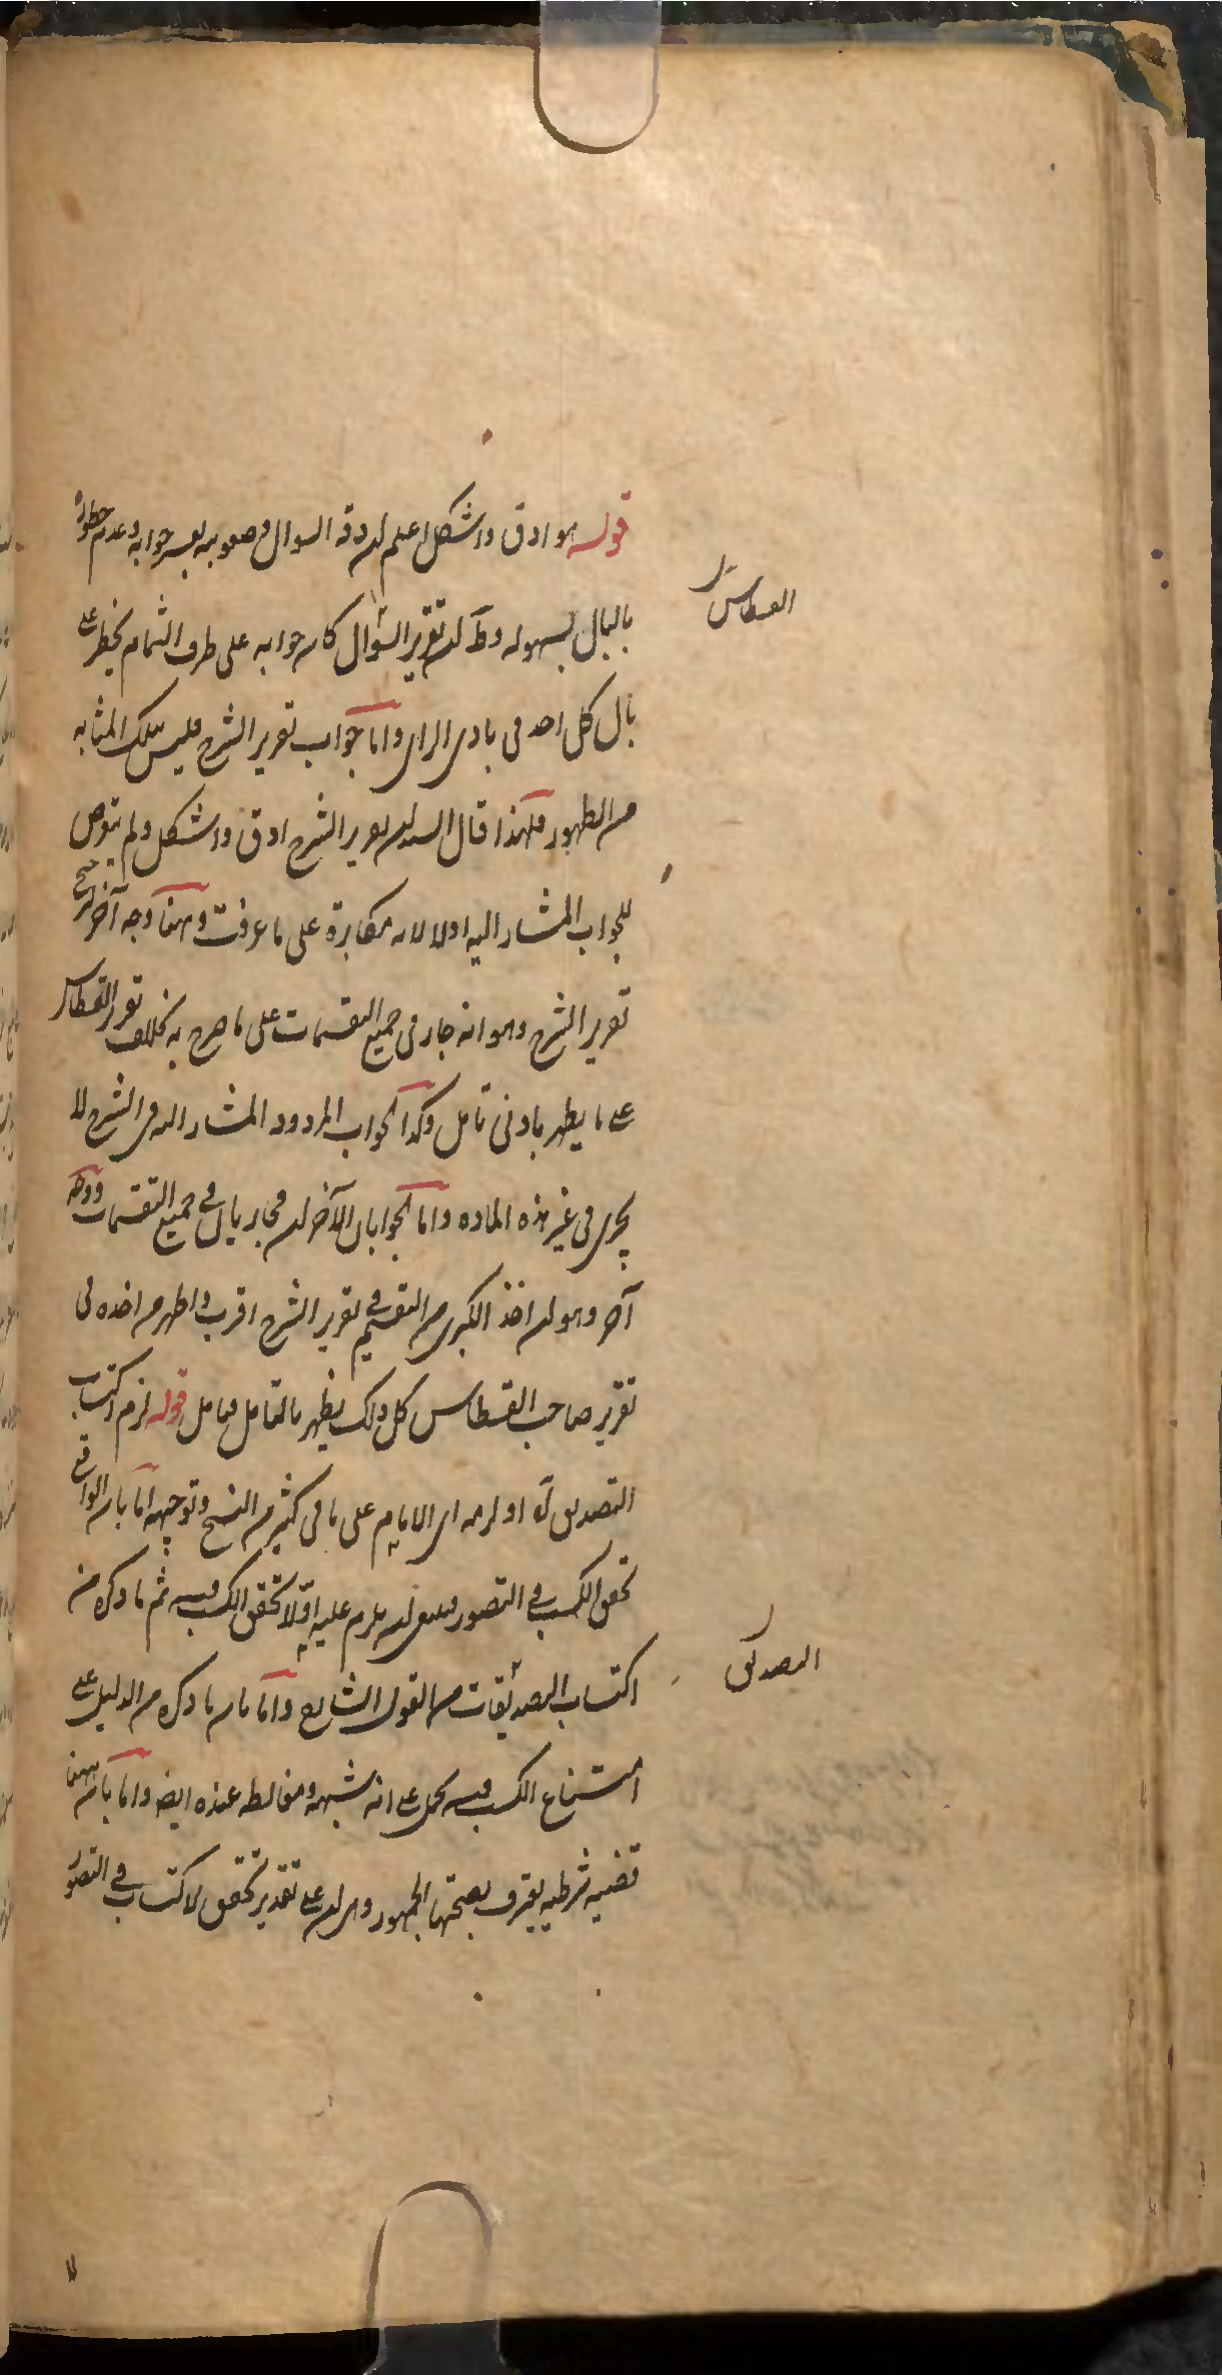 قوله هو ادق واشكل اعلم ان دقة السوال وصعوبته بعسر جوابه وعدم خطوره
بالبال بسهوله وظ ان تقرير السؤال كان جوابه على طرف الثمام يخطر على
القسطاس
بال كل احد فى بادى الراى واما جواب تقرير الشرح فليس بتلك المثابه
من الظهور فلهذا قال السيد ان تقرير الشرح ادق واشكل ولم يتعرض
للجواب المشار اليه اولا لانه مكابرة على ما عرفت وههنا وجه آخر
تقرير الشرح وهو انه جار فى جميع التقسيمات على ما صرح به بخلاف تقرير القسطاس
على ما يظهر بادنى تامل وكذا الجواب المردود المشار اليه فى الشرح لا
يجرى فى غير هذه الماده واما الجوابان الآخران فجاريان فى جميع التقسيمات ووجه
آخر وهو ان اخذ الكبرى من التقسيم فى تقرير الشرح اقرب واظهر من اخذه فى
تقرير صاحب القسطاس كل ذلك يظهر بالتامل فتامل قوله لزم اكتساب
التصديق آه او لزمه اى الامام على ما فى كثير من النسخ وتوجيهه اما بان الواقع
تحقق الكسب فى التصور فينبغى ان يلزم عليه اولا تحقق الكسب فيه ثم ما ذكره من
اكتساب التصديقات من القول الشارح واما بان ما ذكره من الدليل على
التصديق
امتناع الكسب فيه يحمل على انه شبهه ومغالطه عنده ايضا واما بان ههنا
قضيه شرطيه يعترف بصحتها الجمهور وهى ان على تقدير تحقق الاكتساب فى التصور